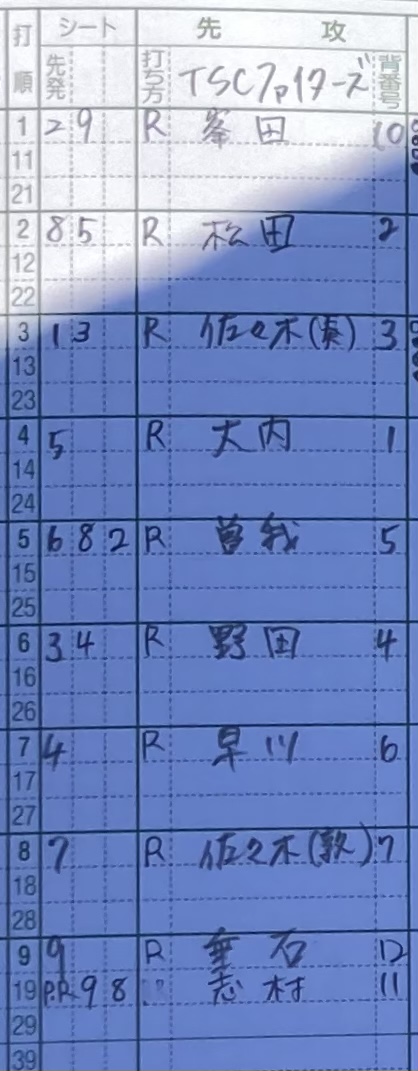 打順 シート 先攻
先発 打ち方 TSCファイターズ 背番号
1 2 9 R 峯田 10
11
21
2 8 5 R 松田 2
12
22
3 1 3 R 佐々木(真) 3
13
23
4 5 R 大内 1
14
24
5 6 8 2 R 曽我 5
15
25
6 3 4 R 野田 4
16
26
7 4 R 早川 6
17
27
8 7 R 佐々木(敦) 7
18
28
9 9 R 垂石 12
19 P.R 9 8 志村 11
29
39